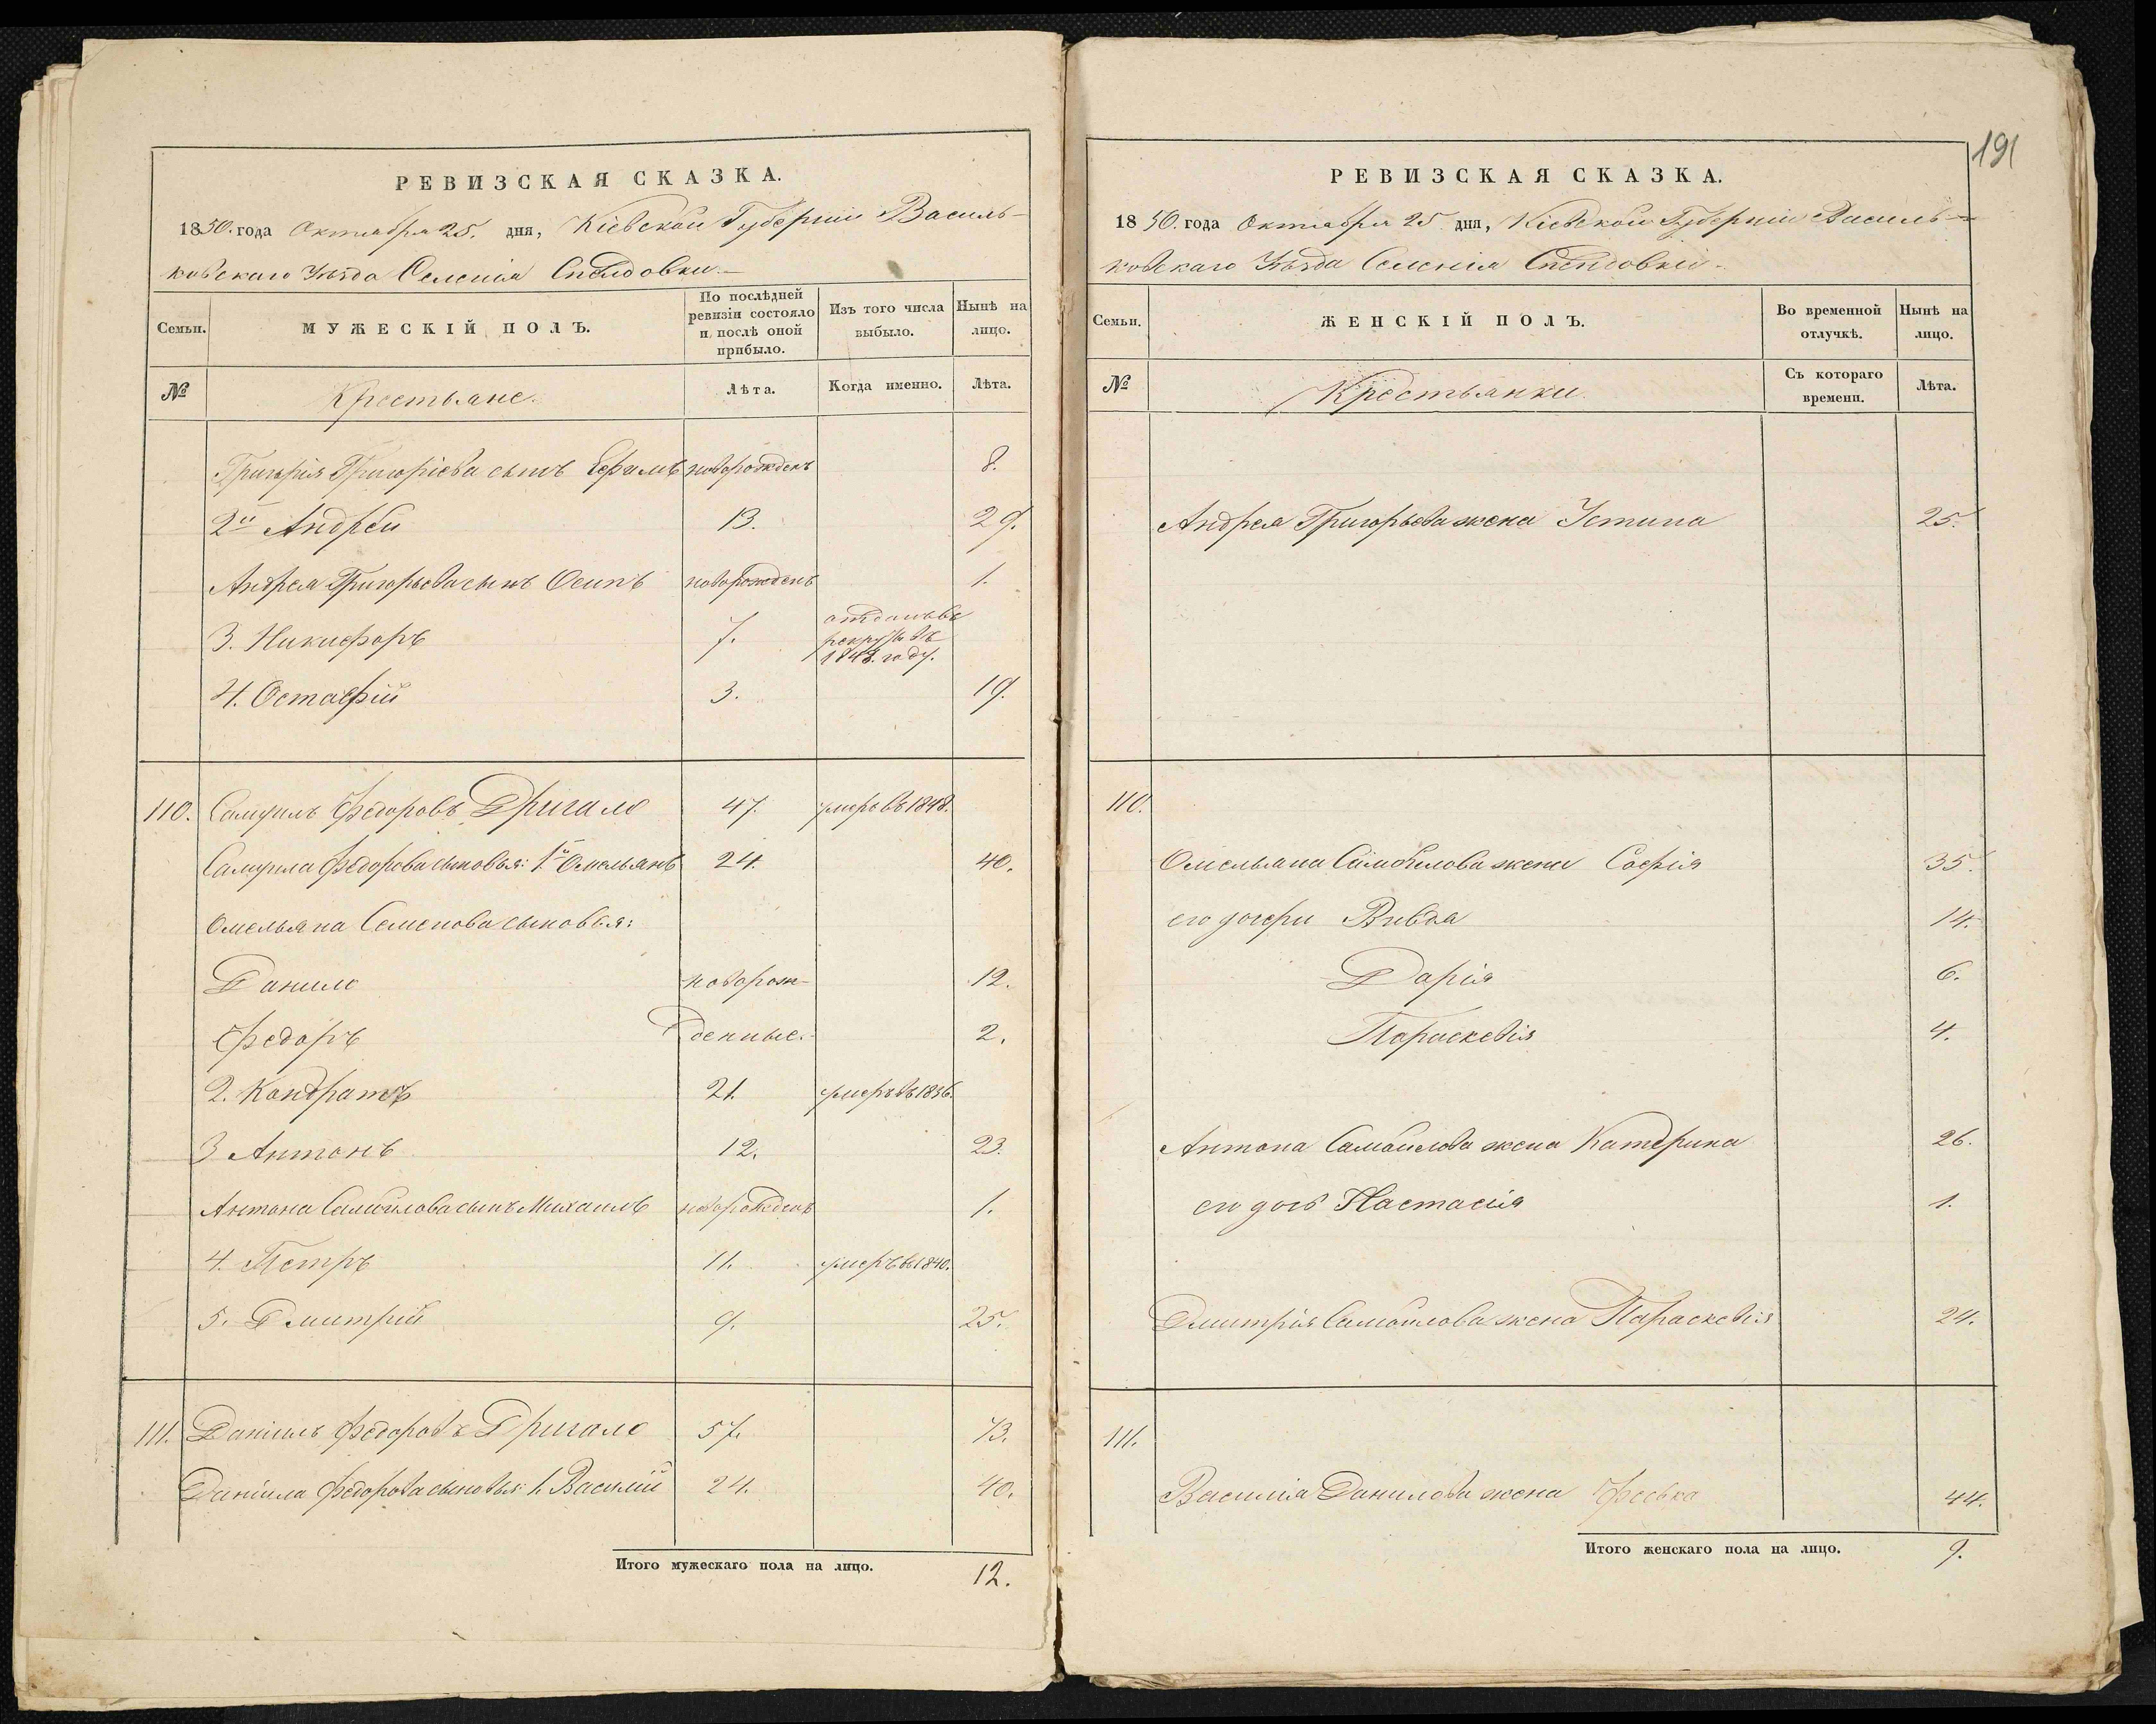 РЕВИЗСКАЯ СКАЗКА.
1850. года Октября 25. дня, Кіевской Губерніи Василь-
ковскаго Уѣзда Селенія
Семьи.
МУЖЕСКІЙ ПОЛЪ.
По послѣдней ревизіи состояло и послѣ оной прибыло.
Изъ того числа выбыло.
Нынѣ на лицо.
№
Крестьяне.
Лѣта.
Когда именно.
Лѣта.
Григорія Григоріева сынъ Ефимъ новорожденъ 8.
2й Андрей 13. 29.
Андрея Григорьева сынъ Осипъ новорожденъ 1.
3. Никифоръ 7. отданъ въ
рекруты въ
1848. году.
4. Остафій 3. 19.
110. Самуилъ Федоровъ Дригало 47. умеръ въ 1848.
Самуила Федорова сыновья: 1й Омельянъ 24. 40.
Омельяна Семенова сыновья:
Данило новорож- 12.
Федоръ денные. 2.
2. Кондратъ 21. умеръ въ 1836.
3 Антонъ 12. 23.
Антона Самойлова сынъ Михаилъ новорожденъ 1.
4. Петръ 11. умеръ въ 1840.
5. Дмитрій 9. 25.
111. Даніилъ Федоровъ Дригало 57. 73.
Даніила Федорова сыновья: 1. Василій 24. 40.
Итого мужескаго пола на лицо. 12.
191
РЕВИЗСКАЯ СКАЗКА.
1850. года Октября 25 дня, Кіевской Губерніи Василь-
ковскаго Уѣзда Селенія
Семьи.
ЖЕНСКІЙ ПОЛЪ.
Во временной отлучкѣ.
Нынѣ на лицо.
№
Крестьянки.
Съ котораго времени.
Лѣта.
Андрея Григорьева жена Устина 25.
110.
Омельяна Самойлова жена Софія 35.
его дочери Вивдя 14.
Дарія 6.
Параскевія 4.
Антона Самойлова жена Катерина 26.
его дочь Настасія 1.
Дмитрія Самойлова жена Параскевія 24.
111.
Василія Данилова жена Феська 44.
Итого женскаго пола на лицо. 9.